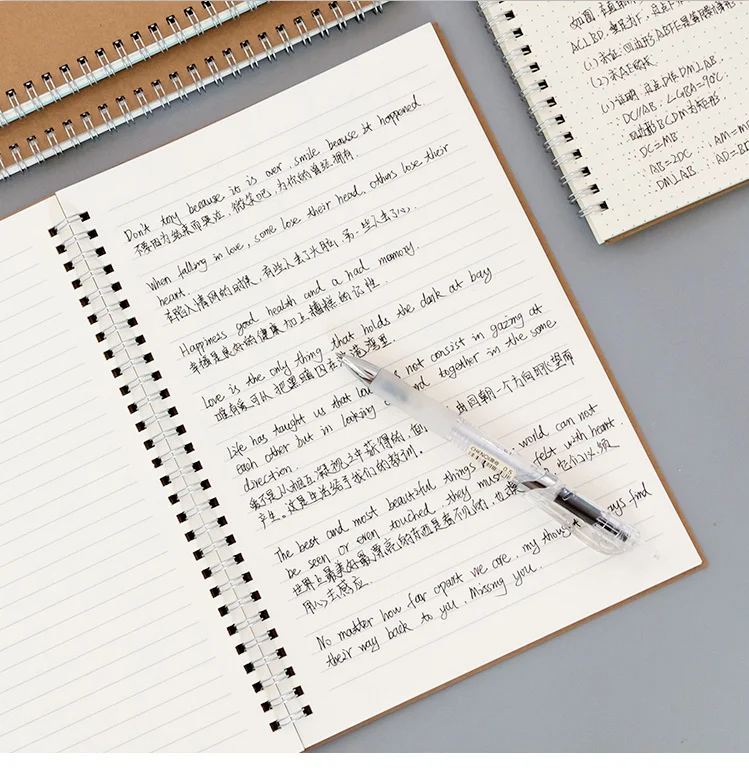 Don't try because it is over, smile because it happened.
不要因为结束而哭泣，微笑吧，为你的曾经拥有.
When falling in love, some lose their head, others lose their
heart.
在陷入情网的时候，有些人丢了大脑，另一些人丢了心.
Happiness good health and a had mamory.
幸福是良好的健康加上糟糕的记性.
Love is the only thing that holds the dark at bay
唯有爱可以把黑暗
Life has taught us that not consist in gazing at
each other but in looking together in the same
direction.
爱不是从相互凝视之中获得的，而 由同朝一个方向眺望而
产生。这是生活给予我们的教训。
The best and most beautiful things world can not
be seen or even touched, they must felt with heart.
世界上最美好最漂亮的东西是看不见的，也 它们必须
用心去感应.
No matter how far apart we are, my thought always find
their way back to you. Missing you.
AC⊥BD
(1)求证:四边形ABFE是
(2)求AE的长
(1)证明
DC//AB, ∠CBA=90°C
四边形BCDM为矩形
DC=MB
AB=2DC AM=M
DM⊥AB AD=BD